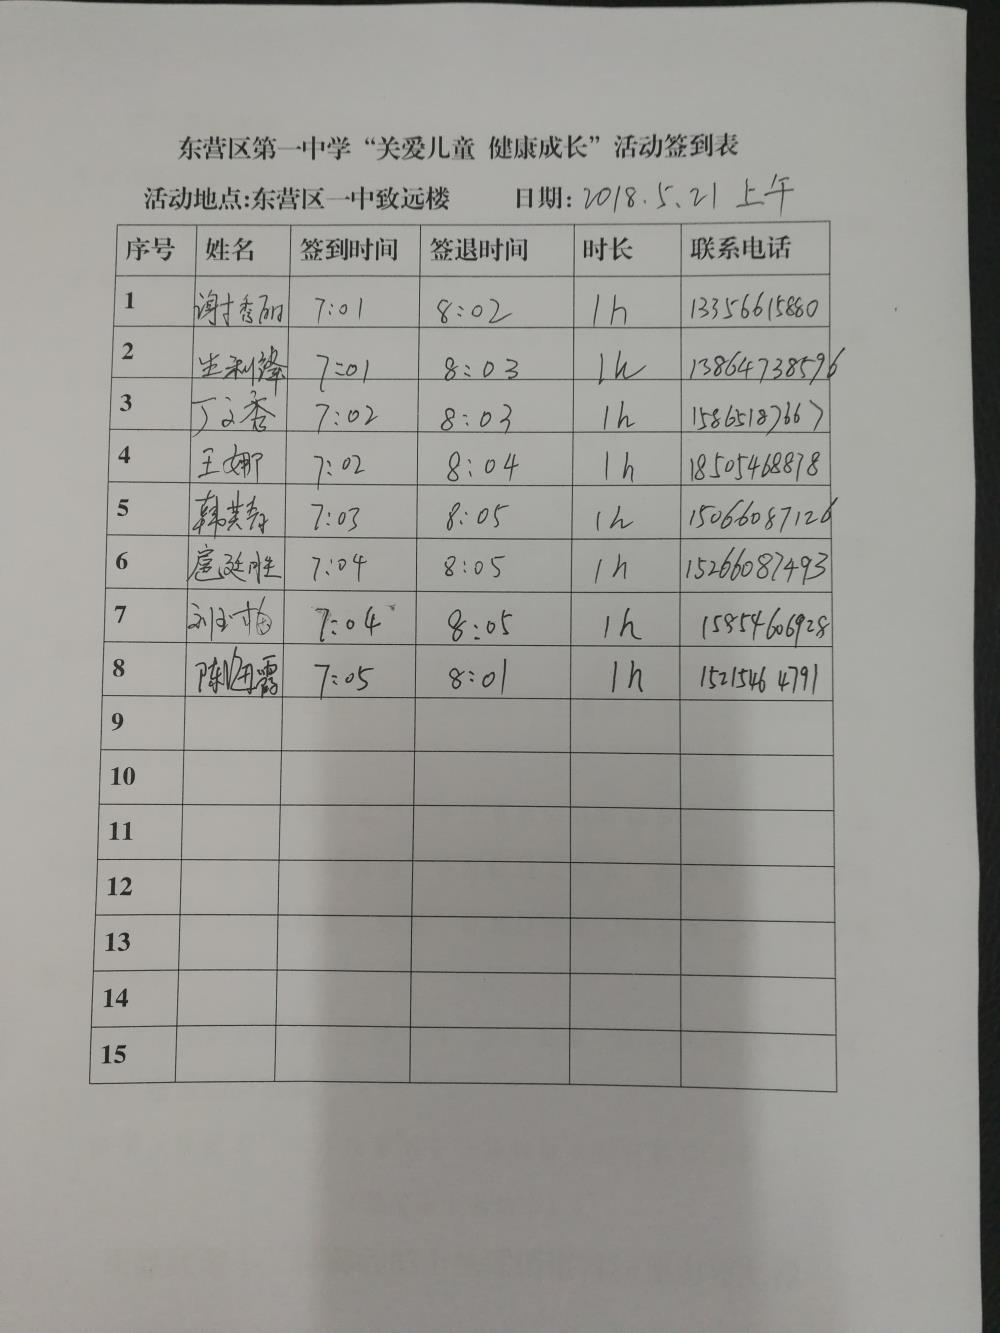 东营区第一中学“关爱儿童 健康成长”活动签到表
活动地点:东营区一中致远楼 日期: 2018.5.21 上午
序号 姓名 签到时间 签退时间 时长 联系电话
1 谢秀丽 7:01 8:02 1h 13356615880
2 生利锋 7:01 8:03 1h 13864738596
3 丁文秀 7:02 8:03 1h 15865187667
4 王娜 7:02 8:04 1h 18505468878
5 韩英春 7:03 8:05 1h 15066087126
6 扈廷胜 7:04 8:05 1h 15266087493
7 刘玉梅 7:04 8:05 1h 15854606928
8 陈海霞 7:05 8:01 1h 15215464791
9
10
11
12
13
14
15